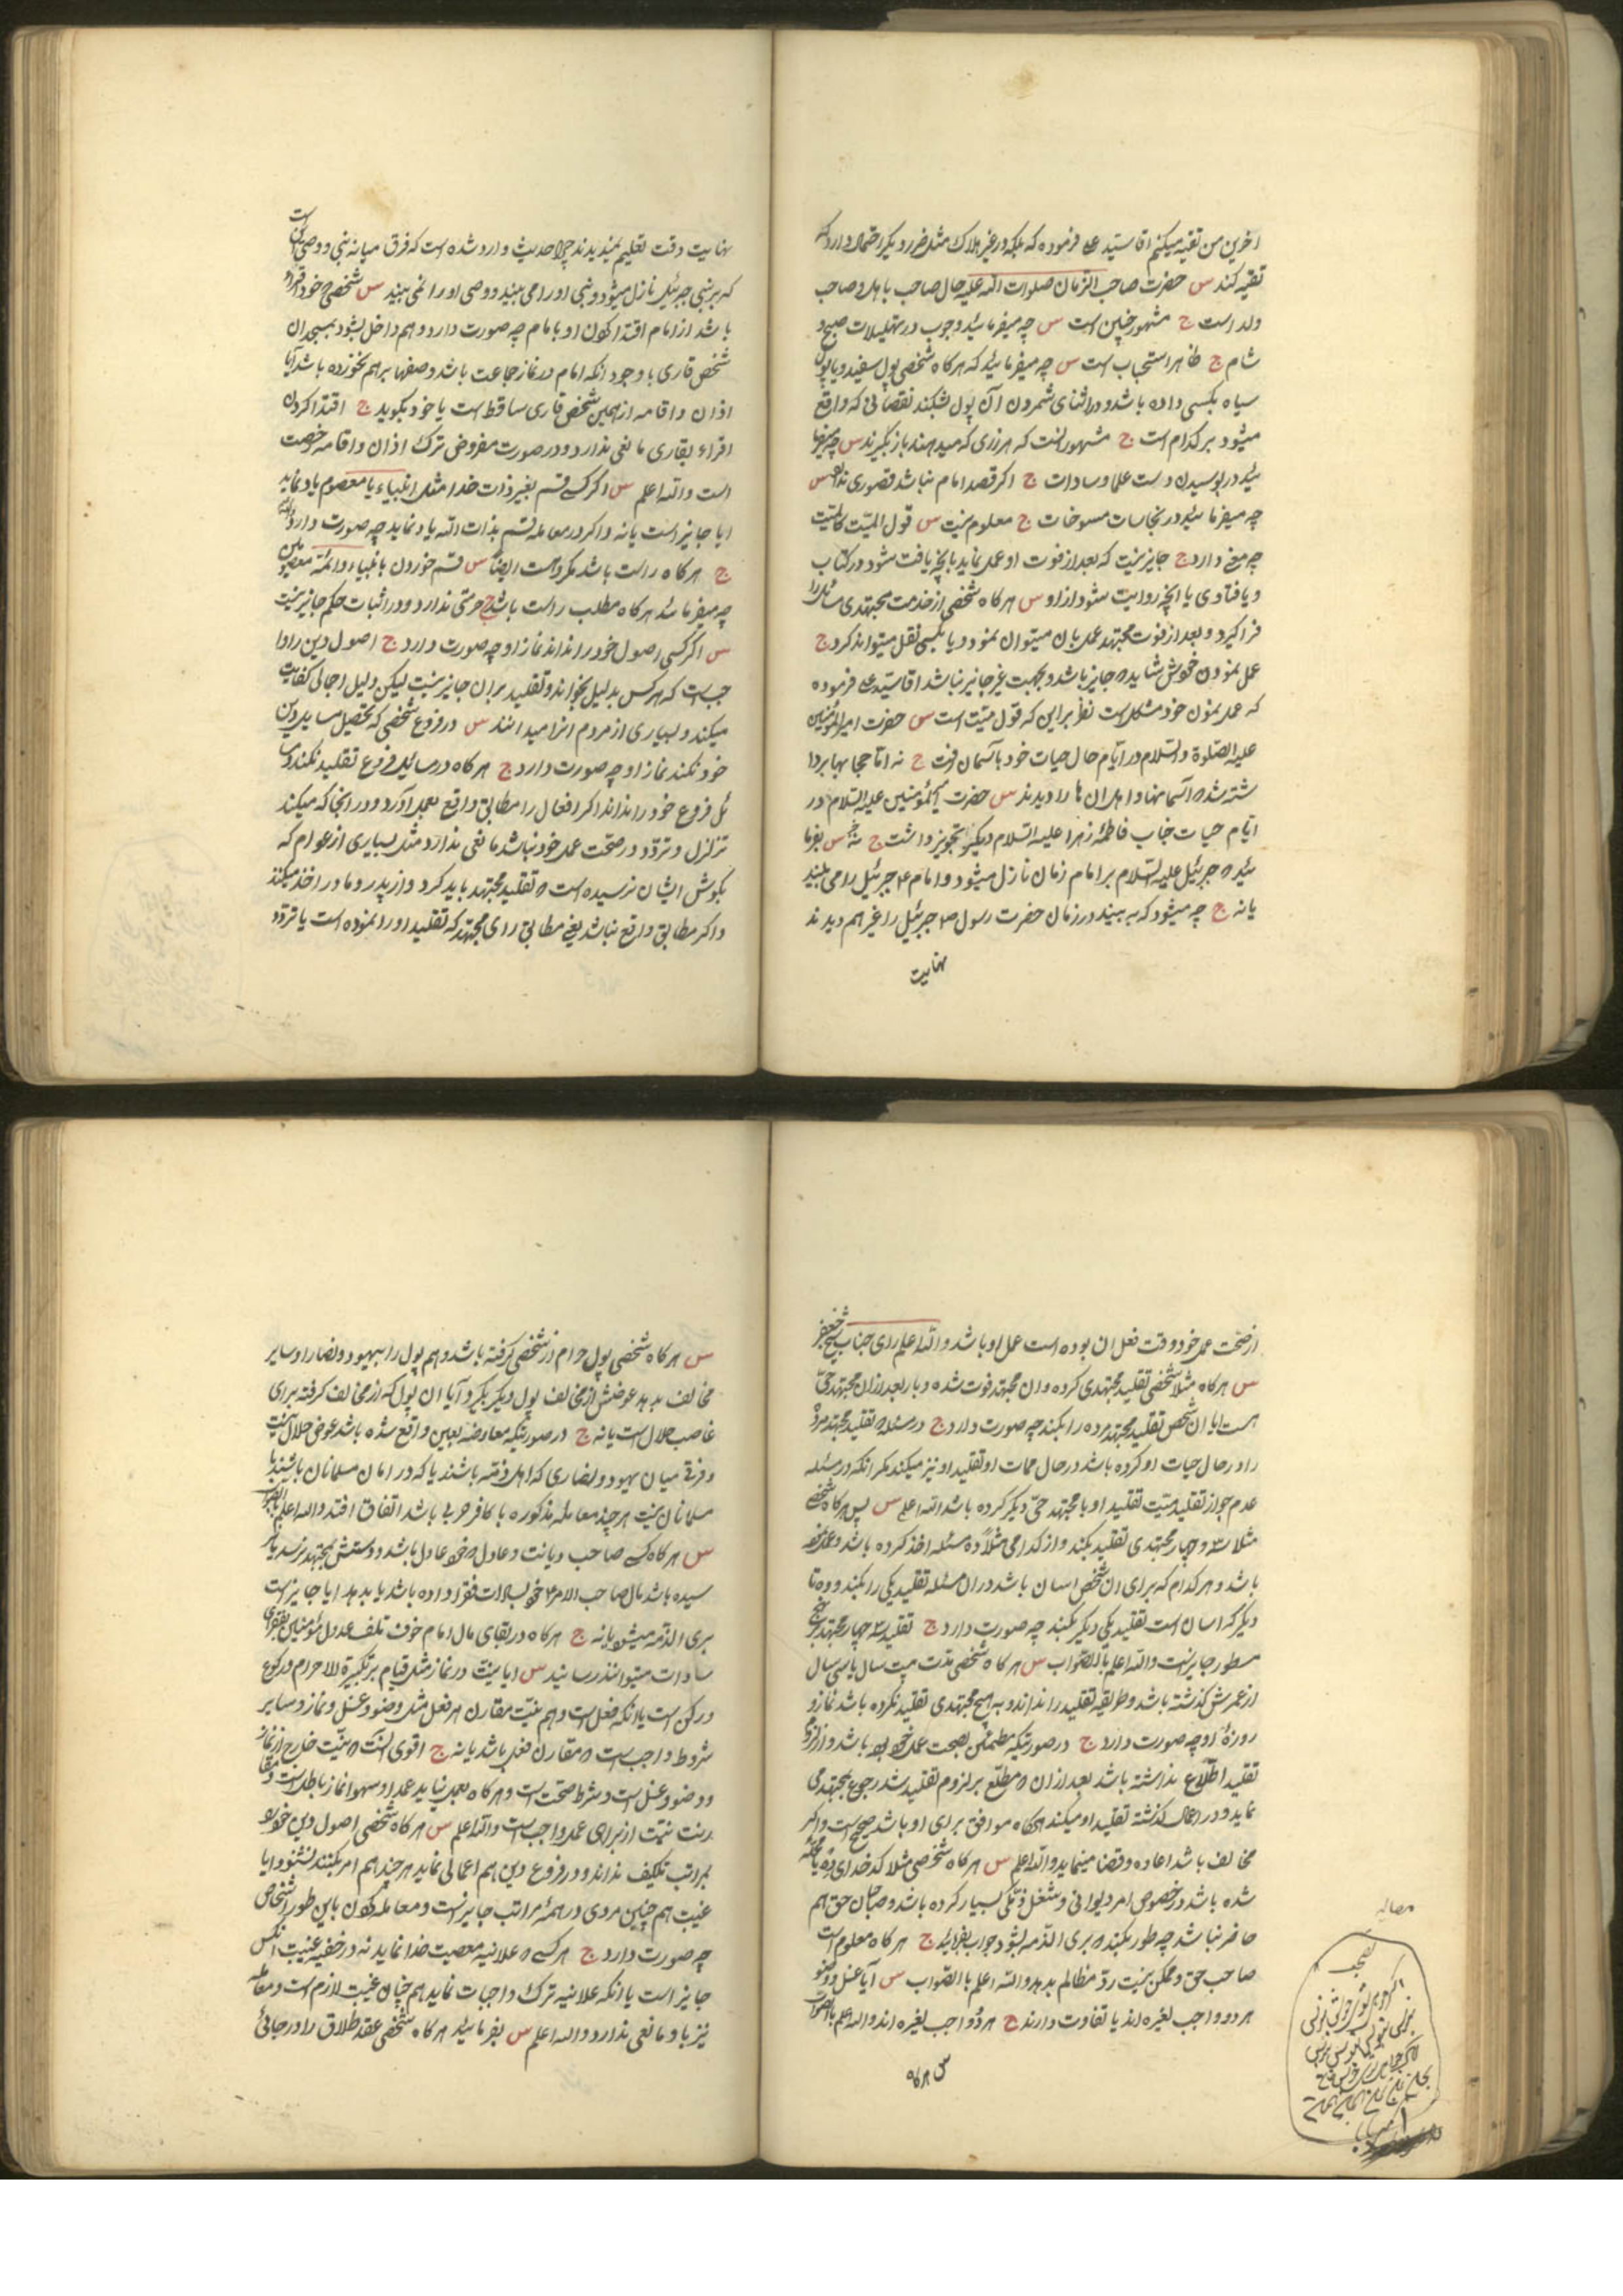 اخرین من تقیه میکنم اقا سید ع فرموده که بلکه در غیر هلاک مثل ضرر دیگر احتمال دارد که
تقیه کند س حضرت صاحب الزمان صلوات الله علیه حال صاحب با اهل و صاحب
ولد است ج مشهور چنین است س چه میفرمائید وجوب در تهلیلات صبح و
شام ج ظاهرا استحباب است س چه میفرمائید که هرکاه شخصی پول سفید و یا پول
سیاه بکسی داده باشد و در اثنای شمردن آن پول شکند نقصانی که واقع
میشود بر کدام است ج مشهور انست که هر زری که میدهند باز بگیرند س چه میفرما
ئید در بوسیدن دست علما و سادات ج اکر قصد امام نباشد قصوری ندارد س
چه میفرمائید در نجاسات مسوخات ج معلوم نیست س قول المیت کالمیت
چه معنی دارد ج جایز نیست که بعد از فوت او عمل نماید بانچه یافت شود در کتاب
و یا فتاوی یا انچه روایت شود از او س هرکاه شخصی از خدمت مجتهدی مسائل را
فرا کیرد و بعد از فوت مجتهد عمل بان میتوان نمود و یا بکسی نقل میتواند کرد ج
عمل نمودن خودش شاید که جایز باشد و بجهت غیر جایز نباشد اقا سید ع فرموده
که عمل نمودن خود مشکل است نظر براین که قول میت است س حضرت امیر المؤمنین
علیه الصلوة والسلام در ایام حال حیات خود باسمان رفت ج نه اما حجابها بردا
شته شد که اسمانها و اهل ان ها را دیدند س حضرت امیر المؤمنین علیه السلام در
ایام حیات جناب فاطمه زهرا علیه السلام دیگر تجویز داشت ج نه خیر س بفرما
ئید که جبرئیل علیه السلام بر امام زمان نازل میشود و امام ع جبرئیل را می بیند
یا نه ج چه میشود که به بیند در زمان حضرت رسول ص جبرئیل را غیر هم دیدند
نهایت
نهایت وقت تعلیم نمیدیدند چرا حدیث وارد شده است که فرق میانه نبی و وصی آن است
که بر نبی جبرئیل نازل میشود و نبی او را می بیند و وصی او را نمی بیند س شخصی خود اقراء
باشد از امام اقتدا کردن او با مام چه صورت دارد و هم داخل بشود بمسجد ان
شخص قاری با وجود انکه امام در نماز جماعت باشد و صفها برهم نخورده باشد آیا
اذان و اقامه از همین شخص قاری ساقط است یا خود بگوید ج اقتدا کردن
اقراء بقاری مانعی ندارد و در صورت مفروض ترک اذان و اقامه رخصت
است والله اعلم س اکر کسی قسم بغیر ذات خدا مثل انبیاء یا معصوم یاد نماید
ایا جایز است یا نه و اکر در معامله قسم بذات الله یاد نماید چه صورت دارد
ج هرکاه راست باشد مکروه است ایضا س قسم خوردن بانبیاء و ائمه معصومین
چه میفرمائید هرکاه مطلب راست باشد ج حرمتی ندارد و در اثبات حکم جایز نیست
س اکر کسی اصول خود را نداند نماز او چه صورت دارد ج اصول دین را وا
جبست که هرکس بدلیل بخواند و تقلید بران جایز نیست لیکن دلیل اجمالی کفایت
میکند و بسیاری از مردم انرا میدانند س در فروع شخصی که تحصیل مسایل دین
خود نکند نماز او چه صورت دارد ج هرکاه در مسائل فروع تقلید نکند و مسا
ئل فروع خود را نداند اکر افعال را مطابق واقع بعمل آورد و در انجا که میکند
تزلزل و تردد در صحت عمل خود نباشد مانعی ندارد مثل بسیاری از عوام که
بکوش ایشان نرسیده است که تقلید مجتهد باید کرد و از پدر و مادر اخذ میکند
و اکر مطابق واقع نباشد یعنی مطابق رای مجتهد که تقلید او را نموده است یا تردد
از صحت عمل خود وقت فعل ان بوده است عمل او باشد والله اعلم رای جناب شیخ جعفر
س هرکاه مثلا شخصی تقلید مجتهدی کرده و ان مجتهد فوت شده و باز بعد از ان مجتهد حی
هست ایا ان شخص تقلید مجتهد مرده را بکند چه صورت دارد ج در مسئله تقلید مجتهد مرده
را در حال حیات او کرده باشد در حال ممات او تقلید او نیز میکند مکر انکه در مسئله
عدم جواز تقلید میت تقلید او با مجتهد حی دیگر کرده باشد الله اعلم س پس هرکاه شخصی
مثلا سه و چهار مجتهدی تقلید بکند و از کدامی مثلا ده مسئله اخذ کرده باشد و عمل
باشد و هر کدام که برای ان شخص اسان باشد در ان مسئله تقلید یکی را بکند و ده تا
دیگر که اسان است تقلید یکی دیگر بکند چه صورت دارد ج تقلید سه چهار مجتهد بنهج
مسطور جایز نیست والله اعلم بالصواب س هرکاه شخصی مدت بیست سال یا سی سال
از عمرش کذشته باشد و طریقه تقلید را نداند و به هیچ مجتهدی تقلید نکرده باشد نماز و
روزهٔ او چه صورت دارد ج در صورتیکه مطمئن بصحت عمل خود بوده باشد و از لزوم
تقلید اطلاع نداشته باشد بعد از ان که مطلع بر لزوم تقلید شد رجوع بمجتهد حی
نماید و در اعمال کذشته تقلید او میکند هرکاه موافق برای او باشد صحیح است و اکر
مخالف باشد اعاده و قضا مینماید والله اعلم س هرکاه شخصی مثلا کدخدای ده یا محله
شده باشد در خصوص امر دیوانی و مشغل ذمکی بسیار کرده باشد و صاحبان حق هم
حاضر نباشد چه طور بکند که بری الذمه بشود جواب بفرمائید ج هرکاه معلوم است
صاحب حق و ممکن نیست رد مظالم بدهد والله اعلم بالصواب س آیا غسل و وضو
هر دو واجب لغیره اند یا تفاوت دارند ج هر دو واجب لغیره اند والله اعلم بالصواب
س هرکاه
س هرکاه شخصی پول حرام از شخصی کرفته باشد و هم پول را بیهود و نصارا و سایر
مخالف بدهد عوضش از مخالف پول دیگر بگیرد آیا ان پول که از مخالف کرفته برای
غاصب حلال است یا نه ج در صورتیکه معاوضه بعین واقع شده باشد عوض حلال نیست
و فرق میان یهود و نصاری که اهل ذمه باشند یا که در امان مسلمانان باشند یا
مسلمانان نیست هر چند معامله مذکوره با کافر حربی باشد اتفاق افتد والله اعلم بالصواب
س هرکاه کسی صاحب دیانت و عادل که خود عادل باشد و دستش بمجتهد نرسد یا
سیده باشد مال صاحب الامر ع خود بسادات فقرا داده باشد یا بدهد ایا جایز است
بری الذمه میشود یا نه ج هرکاه در بقای مال امام خوف تلف عدول مؤمنین بفقرای
سادات میتوانند رسانید س ایا نیت در نماز مثل قیام بر تکبیرة الاحرام و رکوع
و رکن است یا انکه فعل است و هم نیت مقارن هر فعل مثل وضو و غسل و نماز و سایر
شروط واجب است که مقارن فعل باشد یا نه ج اقوی انست که نیت خارج از نماز
و وضو و غسل است و شرط صحت است و هرکاه بعمل نیاید عمدا و سهوا نماز باطل است و مقا
رنت نیت از برای عمل واجب است والله اعلم س هرکاه شخصی اصول دین خود
بمراتب تکلیف نداند و در فروع دین هم اعمالی نماید هر چند هم امر بکنند نشنود ایا
غیبت هم چنین مردی در همهٔ مراتب جایز است و معامله کردن باین طور اشخاص
چه صورت دارد ج هر کسی که علانیه معصیت خدا نماید نه در خفیه غیبت انکس
جایز است یا انکه علانیه ترک واجبات نماید هم چنان غیبت لازم است و معامله
نیز با و مانعی ندارد والله اعلم س بفرمائید هرکاه شخصی عقد طلاق را در جائی